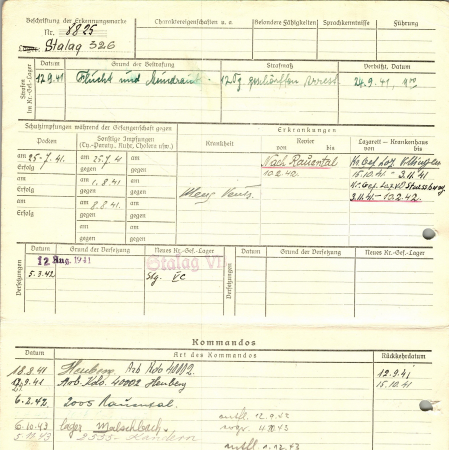 Beschriftung der Erkennungsmarke
Nr. 8825
Stalag 326
Charaktereigenschaften u. a.
Besondere Fähigkeiten
Sprachkenntnisse
Führung
Strafen im Kr.-Gef.-Lager
Datum
Grund der Bestrafung
Strafmaß
Verbüßt, Datum
12.9.41
Flucht und
12 Tg geschärften Arrest
24.9.41,
Schutzimpfungen während der Gefangenschaft gegen
Erkrankungen
Pocken
Sonstige Impfungen
(Ty.-Paraty., Ruhr, Cholera usw.)
Krankheit
Revier
von bis
Lazarett - Krankenhaus
von bis
am 25.7.41.
Erfolg
am
Erfolg
am
Erfolg
am
Erfolg
am 25.7.41
gegen
am 1.8.41
gegen
am 8.8.41.
gegen
am
gegen
am
gegen
Nach Rauental
10.2.42.
15.10.41 - 3.11.41
3.11.41 - 10.2.42.
Versetzungen
Datum
Grund der Versetzung
Neues Kr.-Gef.-Lager
Versetzungen
Datum
Grund der Versetzung
Neues Kr.-Gef.-Lager
12 Aug. 1941
Stalag V
5.3.42
Stg. V C
Kommandos
Datum
Art des Kommandos
Rückkehrdatum
18.8.41
Heuberg Arb Kdo 40002
12.9.41
Arb. Kdo. 40002 Heuberg
15.10.41
6.2.42
2005 Rauental.
6.10.43
Lager Malschbach
5.10.43